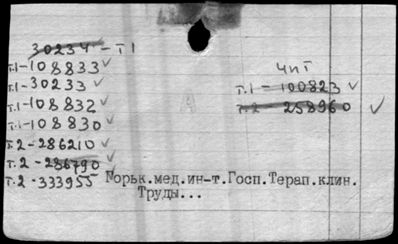 30234-Т1
т.1-108833✓
т.1-30233✓
т.1-108832✓
т.1-108830✓
т.2-286210✓
т.2-286790✓
т.2-333955
ЧиТ
т.1-100823✓
т.2-258960✓
Горьк.мед.ин-т.Госп.Терап.клин.
Труды...